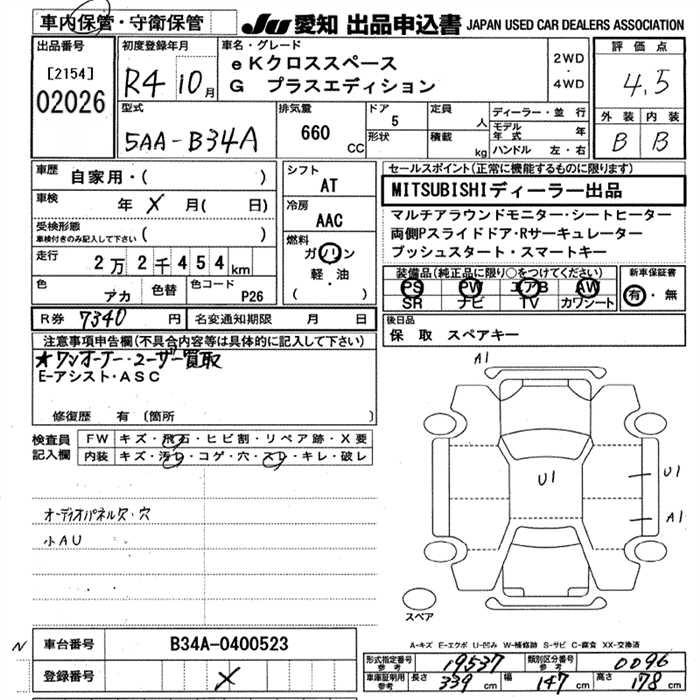 車内保管・守衛保管 JU 愛知 出品申込書 JAPAN USED CAR DEALERS ASSOCIATION
出品番号
[2154]
02026
初度登録年月
R4 10月
車名・グレード
eKクロススペース
G プラスエディション
2WD
・
4WD
評価点
4.5
外装 内装
B B
型式
5AA-B34A
排気量
660 CC
ドア
5
形状
定員
人
積載
kg
ディーラー・並行
モデル年式 年
ハンドル 左・右
車歴
自家用・( )
車検
年 X 月( 日)
受検形態
車検付きのみ記入して下さい ( )
走行
2万2千454km
色
アカ
色替
色コード
P26
シフト
AT
冷房
AAC
燃料
ガソリン
軽・油
( )
セールスポイント(正常に機能するものに限ります)
MITSUBISHIディーラー出品
マルチアラウンドモニター・シートヒーター
両側Pスライドドア・Rサーキュレーター
プッシュスタート・スマートキー
装備品(純正品に限り○をつけてください)
PS PW エアB AW
SR ナビ TV カワシート
新車保証書
有・無
R券 7340 円 名変通知期限 月 日
後日品
保 取 スペアキー
注意事項申告欄(不具合内容等は具体的に記入して下さい)
★ワンオーナー・ユーザー買取
E-アシスト・ASC
修復歴 有 〔箇所 〕
検査員記入欄
FW キズ・飛石・ヒビ割・リペア跡・X要
内装 キズ・汚レ・コゲ・穴・スレ・キレ・破レ
オーディオパネル欠・穴
小AU
A1
U1
U1
A1
スペア
A-キズ E-エクボ U-凹み W-補修跡 S-サビ C-腐食 XX-交換済
N 車台番号 B34A-0400523
登録番号 X
形式指定番号 参考 19537 類別区分番号 参考 0096
車庫証明用 参考 長さ 339 cm 幅 147 cm 高さ 178 cm